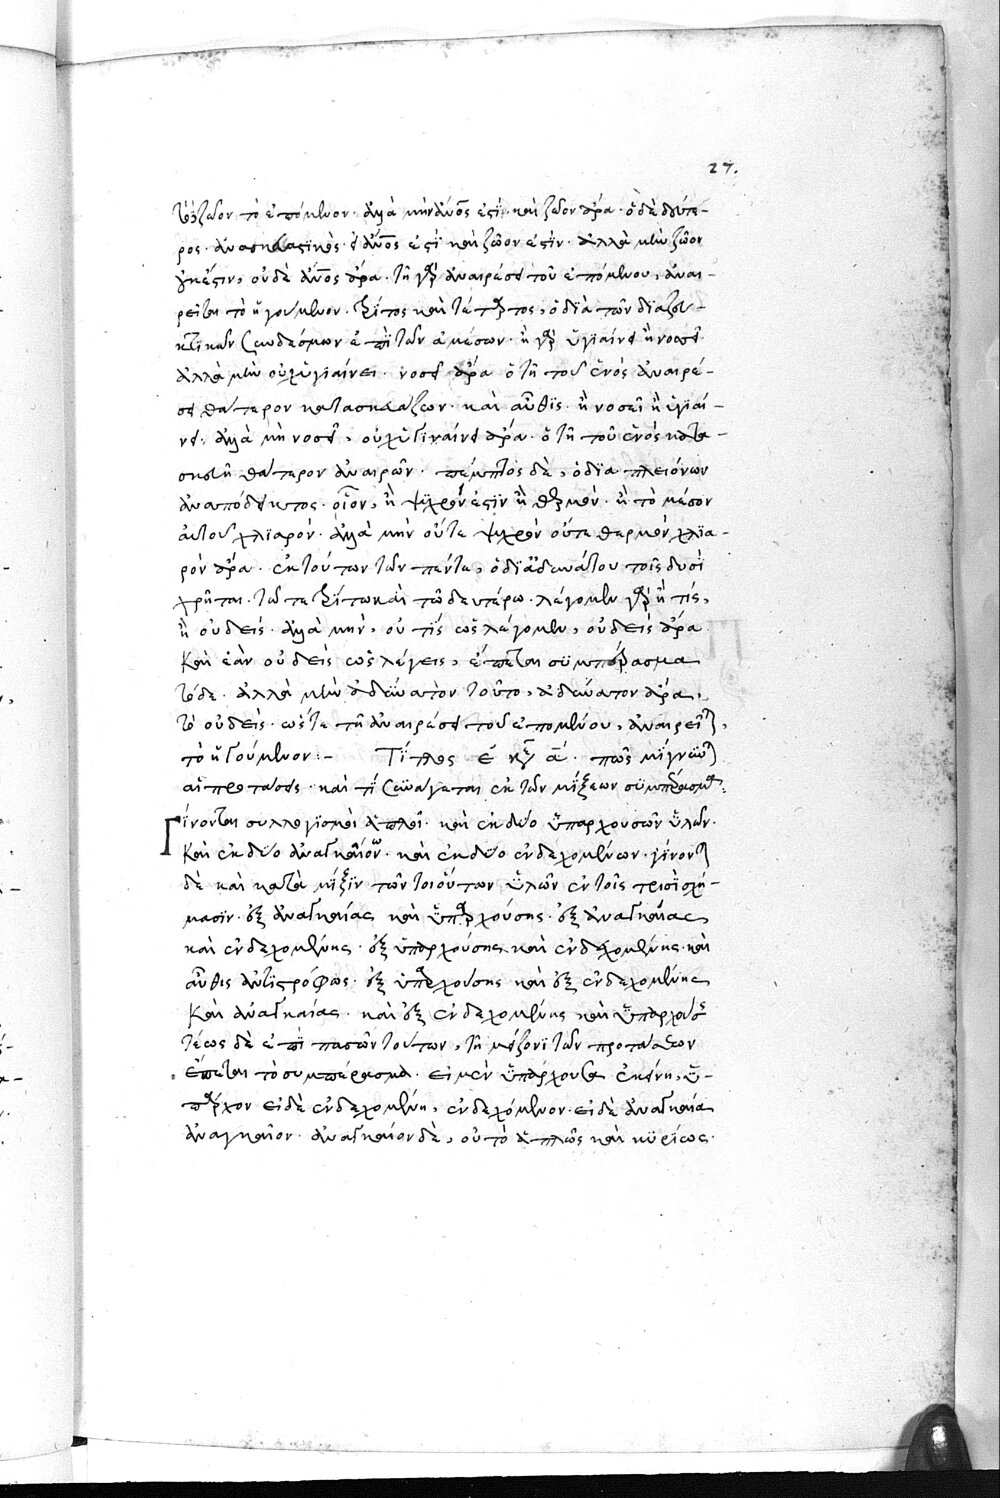 27.
τὸ ἑπόμενον· ἀλλὰ μὴν ἄνος ἐστὶ καὶ ζῶον ἄρα· ὁ δὲ δεύτε-
ρος ἀνασκευαστικὸς· εἰ ἄνος ἐστὶ καὶ ζῶον ἐστίν· ἀλλὰ μὴν ζῶον
οὐκ ἔστιν, οὐδὲ ἄνος ἄρα· τῆ γὰρ ἀναιρέσει τοῦ ἑπομένου, ἀναι-
ρεῖται τὸ ἡγούμενον. τρίτος καὶ τέταρτος, ὁ διὰ τῶν διαζευ-
κτικῶν συνδέσμων ἐπὶ τῶν ἀμέσων· ἢ γὰρ ὑγιαίνει ἢ νοσεῖ
ἀλλὰ μὴν οὐχ ὑγιαίνει· νοσεῖ ἄρα ὁ τῆ τοῦ ἑνὸς ἀναιρέ-
σει θάτερον κατασκευάζων· καὶ αὖθις ἢ νοσεῖ ἢ ὑγιαί-
νει· ἀλλὰ μὴν νοσεῖ, οὐχ ὑγιαίνει ἄρα· ὁ τῆ τοῦ ἑνὸς κατα-
σκευῆ θάτερον ἀναιρῶν· πέμπτος δὲ, ὁ διὰ πλειόνων
ἀναπόδεικτος· οἷον, ἢ ψυχρόν ἐστιν ἢ θερμὸν· ἢ τὸ μέσον
αὐτοῦ χλιαρόν· ἀλλὰ μὴν οὔτε ψυχρὸν οὔτε θερμὸν χλια-
ρὸν ἄρα· ἐκ τούτων τῶν πέντε, ὁ δι' ἀδυνάτου τοῖς δυσὶ
χρῆται· τῶ τε τρίτω καὶ τῶ δευτέρω· λέγομεν γὰρ ἢ τίς,
ἢ οὐδείς· ἀλλὰ μὴν, οὐ τίς ὡς λέγομεν, οὐδεὶς ἄρα
καὶ ἐὰν οὐδεὶς ὡς λέγεις, ἕπεται συμπέρασμα
τόδε· ἀλλὰ μὴν ἀδύνατὸν τοῦτο, ἀδύνατον ἄρα,
τὸ οὐδείς· ὥστε τῆ ἀναιρέσει τοῦ ἑπομένου, ἀναιρεῖται,
τὸ ἡγούμενον:- Τίτλος ε̄ κεφ ᾱ· πῶς μίγνυται
αἱ προτάσεις· καὶ τί συνάγεται ἐκ τῶν μίξεων συμπέρασμα:
Γίνονται συλλογισμοὶ ἁπλοῖ· καὶ ἐκ δύο ὑπαρχουσῶν ὑλῶν·
καὶ ἐκ δύο ἀναγκαίων· καὶ ἐκ δύο ἐνδεχομένων· γίνονται
δὲ καὶ κατὰ μίξιν τῶν τοιούτων ὑλῶν ἐν τοῖς τρισὶ σχή-
μασιν· ἐξ ἀναγκαίας καὶ ὑπαρχούσης· ἐξ ἀναγκαίας
καὶ ἐνδεχομένης· ἐξ ὑπαρχούσης καὶ ἐνδεχομένης· καὶ
αὖθις ἀντιστρόφως· ἐξ ὑπαρχούσης καὶ ἐξ ἐνδεχομένης
καὶ ἀναγκαίας· καὶ ἐξ ἐνδεχομένης καὶ ὑπαρχούσης
τέως δὲ ἐπὶ πασῶν τούτων, τῆ μείζονι τῶν προτάσεων
ἕπεται τὸ συμπέρασμα· εἰ μὲν ὑπάρχουσα ἐκείνη, ὑ-
πάρχον εἰ δὲ ἐνδεχομένη, ἐνδεχόμενον· εἰ δὲ ἀναγκαία
ἀναγκαῖον· ἀναγκαῖον δὲ, οὐ τὸ ἁπλῶς καὶ κυρίως·